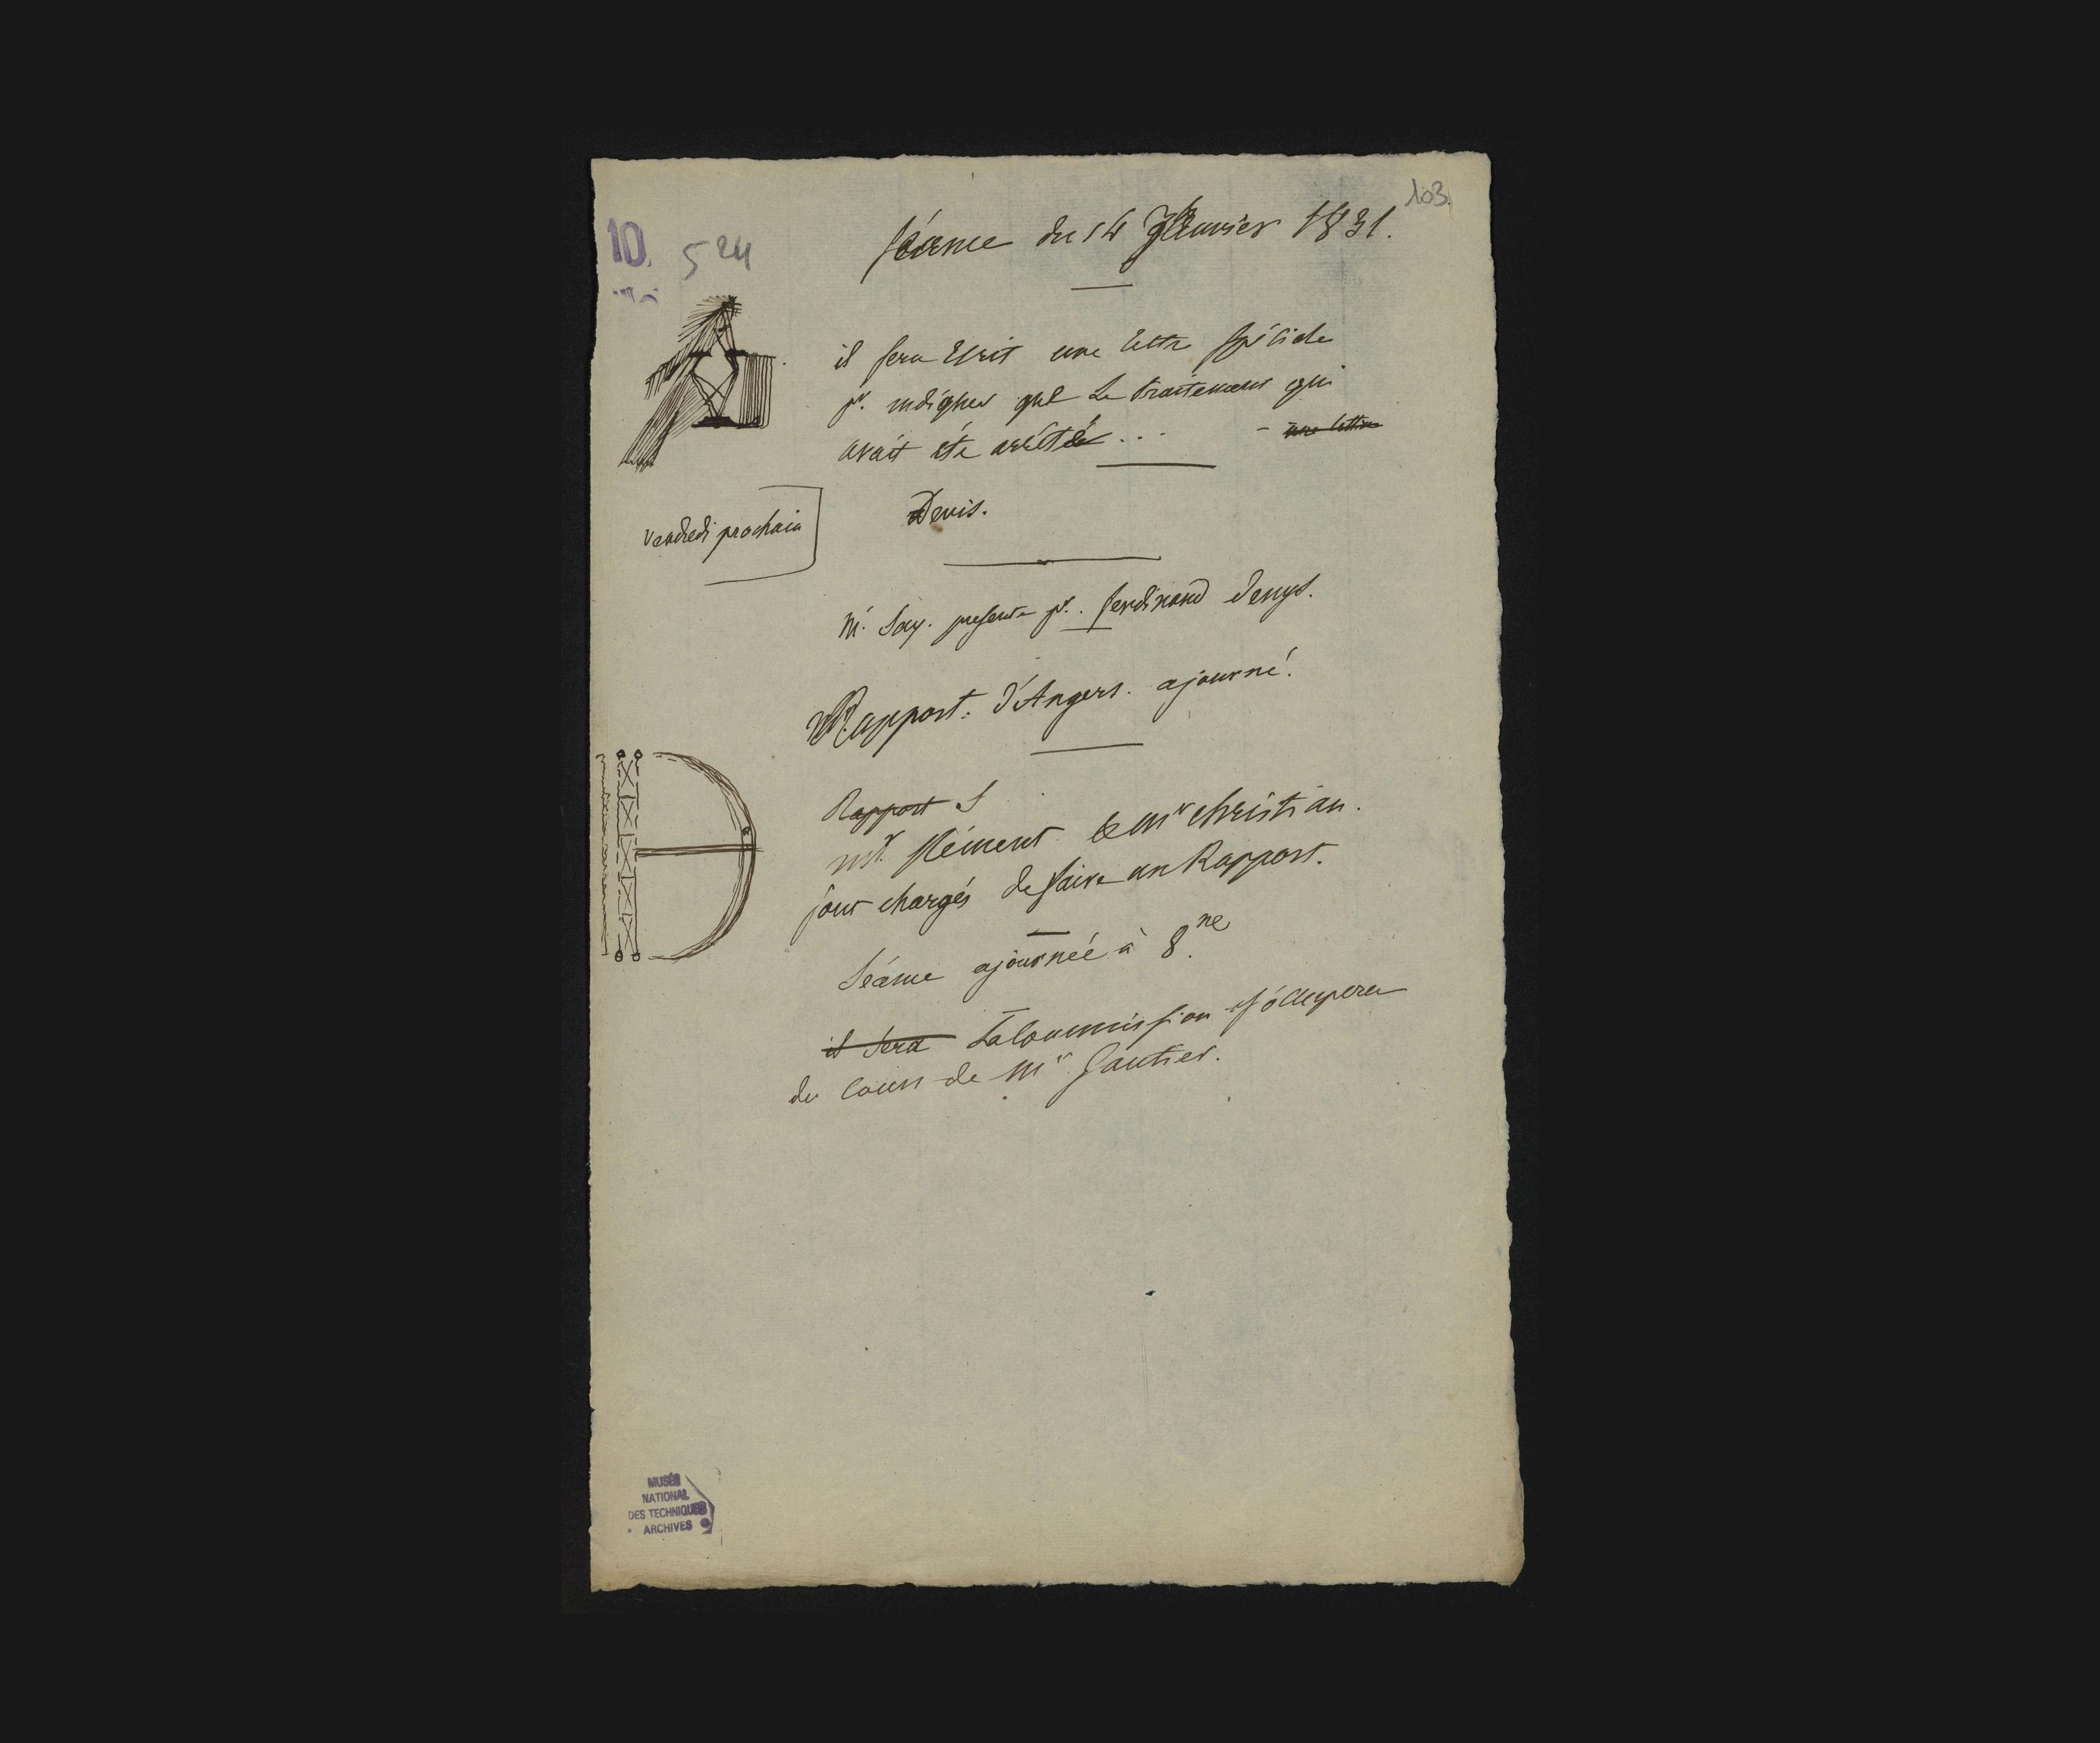 103.
10.
524
Séance du 14 Janvier 1831.
il sera Ecrit une lettre spéciale
pr. indiquer que Le traitement qui
avait été arrêté... - une lettre
Vendredi prochain
Devis.
M. Say. présente pr. ferdinand Denys.
Rapport. d'Angers. ajourné.
Rapport S
Mr. Clément & Mr Christian.
sont chargés de faire un Rapport.
Séance ajournée à 8.ne
il sera La Commission s'occupera
du cours de Mr Gautier.
MUSÉE
NATIONAL
DES TECHNIQUES
ARCHIVES